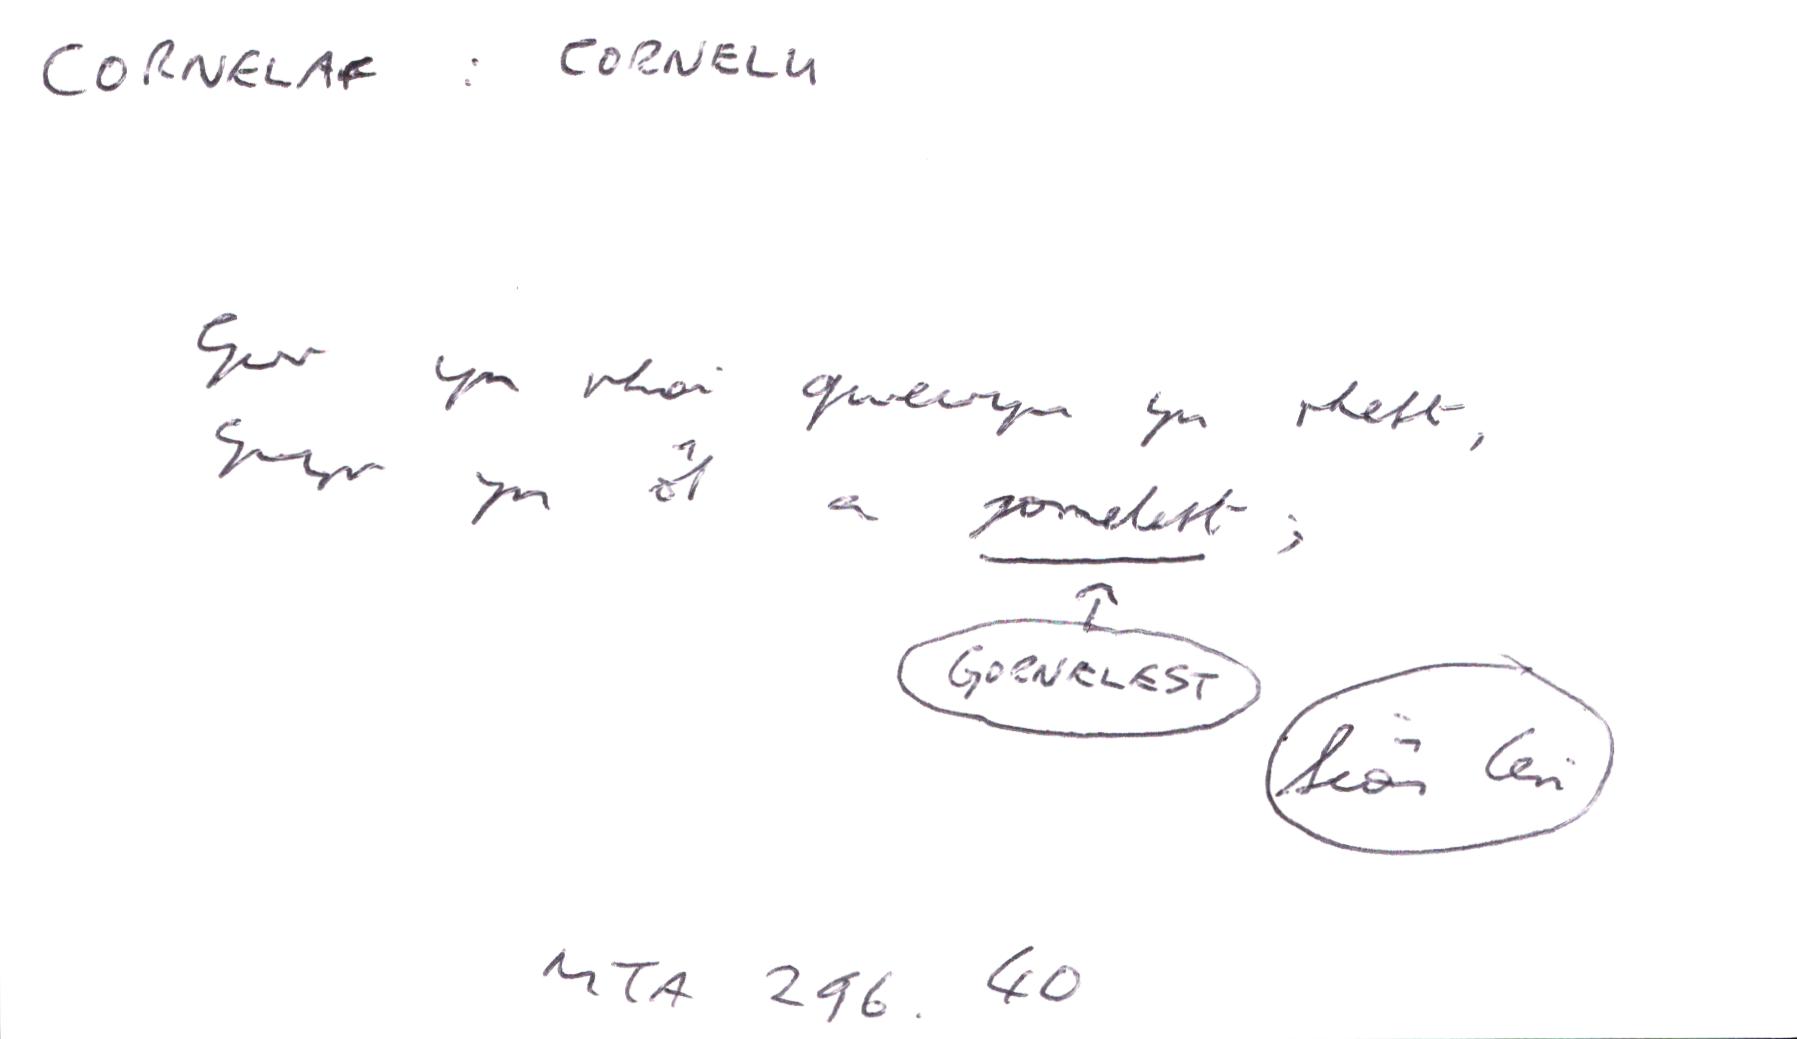 CORNELAF : CORNELU
Gwr yn rhoi gwewyn yn rhest,
Gwyr yn ôl a gornelest;
↑
GORNELEST
Siôn Ceri
MTA 296. 40